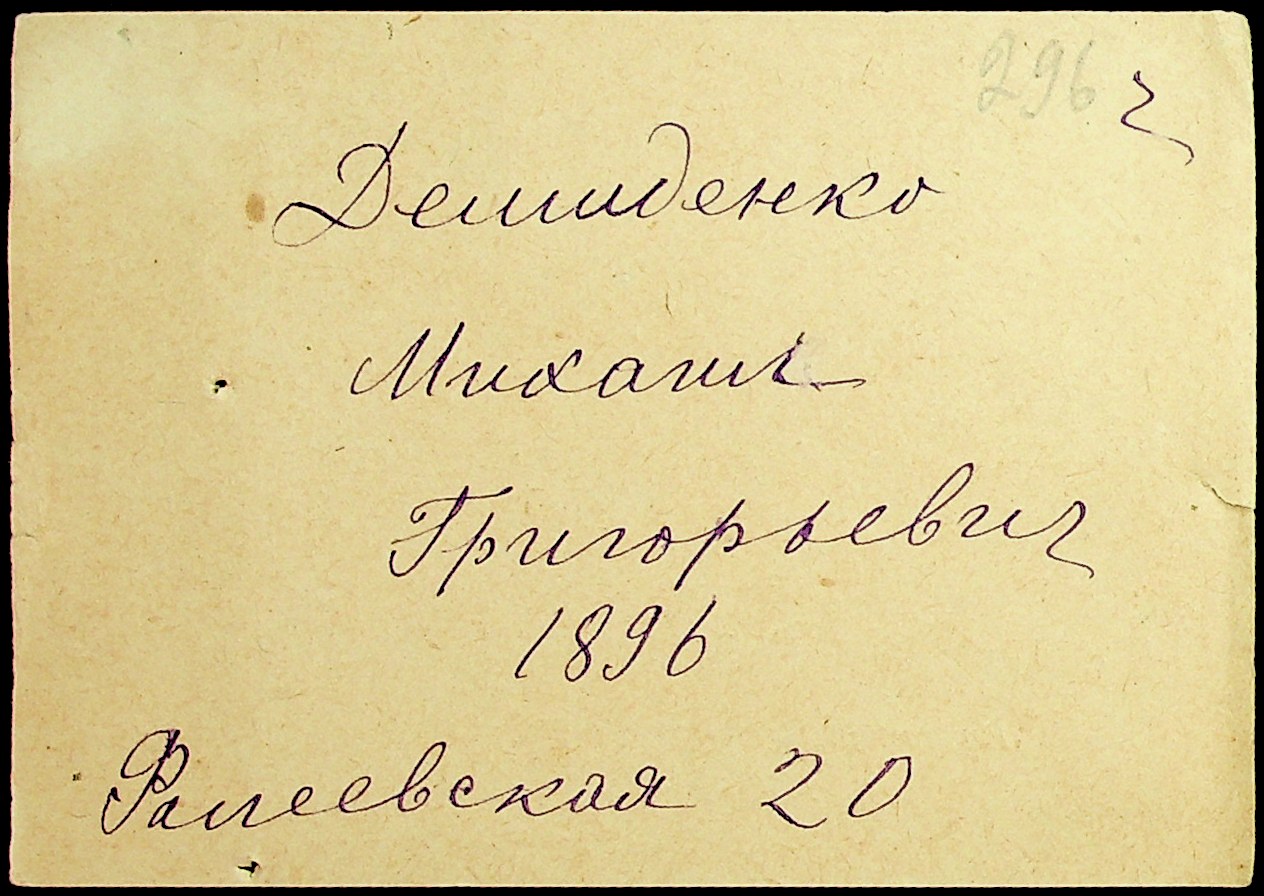 296 ч
Демиденко
Михаил
Григорьевич
1896
Фалеевская 20